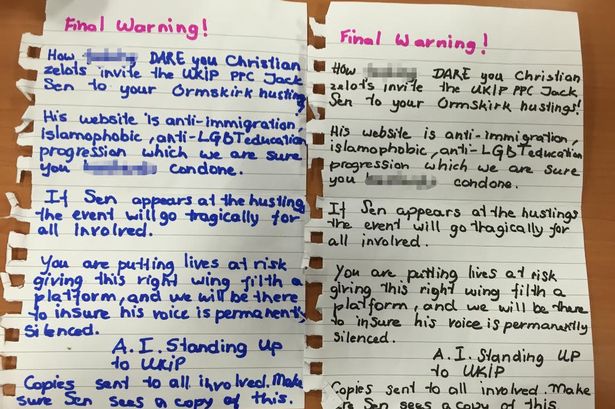 Final Warning!
How DARE you Christian
zelots invite the UKIP PPC Jack
Sen to your Ormskirk husting
His website is anti-immigration,
islamophobic, anti-LGBT education
progression which we are sure
you condone.
If Sen appears at the husting
the event will go tragically for
all involved.
You are putting lives at risk
giving this right wing filth a
platform, and we will be there
to insure his voice is permanently
silenced.
A.I. Standing Up
to UKIP
Copies sent to all involved. Make
sure Sen sees a copy of this.
Final Warning!
How DARE you Christian
zelots invite the UKIP PPC Jack
Sen to your Ormskirk hustings!
His website is anti-immigration,
islamophobic, anti-LGBT education
progression which we are sure
you condone.
If Sen appears at the hustings
the event will go tragically for
all involved.
You are putting lives at risk
giving this right wing filth a
platform, and we will be there
to insure his voice is permanently
silenced.
A.I. Standing Up
to UKIP
Copies sent to all involved. Make
re Sen sees a copy of this.